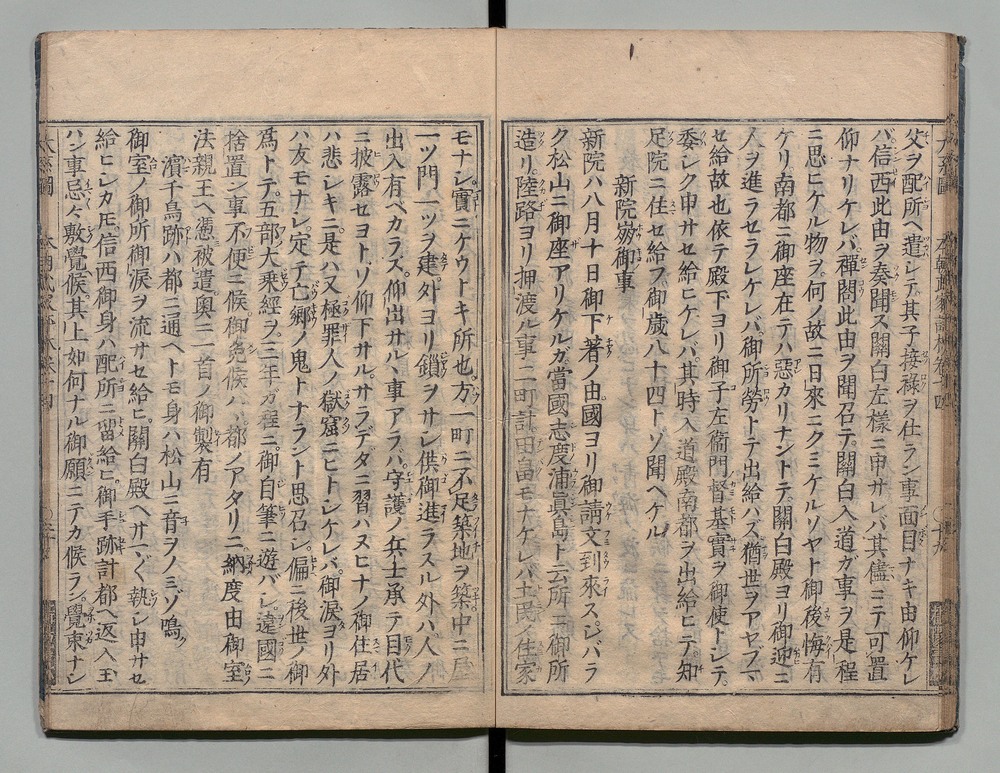 父ヲ配所ヘ遣シテ其子接祿ヲ仕ラン事面目ナキ由仰ケレ
バ信西此由ヲ奏聞ス關白左樣ニ申サレバ其儘ニテ可置
仰ナリケレバ禪閤此由ヲ聞召テ關白入道ガ事ヲ是程
ニ思ヒケル物ヲ何ノ故ニ日來ニクミケルソヤト御後悔有
ケリ南都ニ御座在テハ惡カリナントテ關白殿ヨリ御迎ニ
人ヲ進ラセラレケレバ御所勞トテ出給ハズ猶世ヲアヤブマ
セ給故也依テ殿下ヨリ御子左衞門督基實ヲ御使トシテ
委シク申サセ給ヒケレバ其時入道殿南都ヲ出給ヒテ知
足院ニ住セ給フ御歲八十四トソ聞ヘケル
新院御事
新院ハ八月十日御下著ノ由國ヨリ御請文到來スシバラ
ク松山ニ御座アリケルガ當國志度浦眞島ト云所ニ御所
造リ陸路ヨリ押渡ル事二町計田畠モナケレバ土民ノ住家
モナシ實ニケウトキ所也方一町ニ不足築地ヲ築中ニ屋
一ツ門一ツヲ建外ヨリ鎖ヲサシ供御進ラスル外ハ人ノ
出入有ベカラズ仰出サルヽ事アラバ守護ノ兵士承テ目代
ニ披露セヨトゾ仰下サルサラデダニ習ハヌヒナノ御住居
ハ悲シキニ是ハ又極罪人ノ獄窟ニヒトシケレバ御淚ヨリ外
ハ友モナシ定テ亡鄕ノ鬼トナラント思召シ偏ニ後世ノ御
爲トテ五部大乘經ヲ三年ガ程ニ御自筆ニ遊バシ遠國ニ
捨置ン事不便ニ候御免候ハヾ都ノアタリニ納度由御室
法親王ヘ憑被遣奧ニ一首ノ御製有
濱千鳥跡ハ都ニ通ヘトモ身ハ松山ニ音ヲノミゾ鳴
御室ノ御所御淚ヲ流サセ給ヒ關白殿ヘサマ〴〵執シ申サセ
給ヒシカ𪜈信西御身ハ配所ニ留給ヒ御手跡計都ヘ返入玉
ハン事忌々敷覺候其上如何ナル御願ニテカ候ラン覺束ナシ